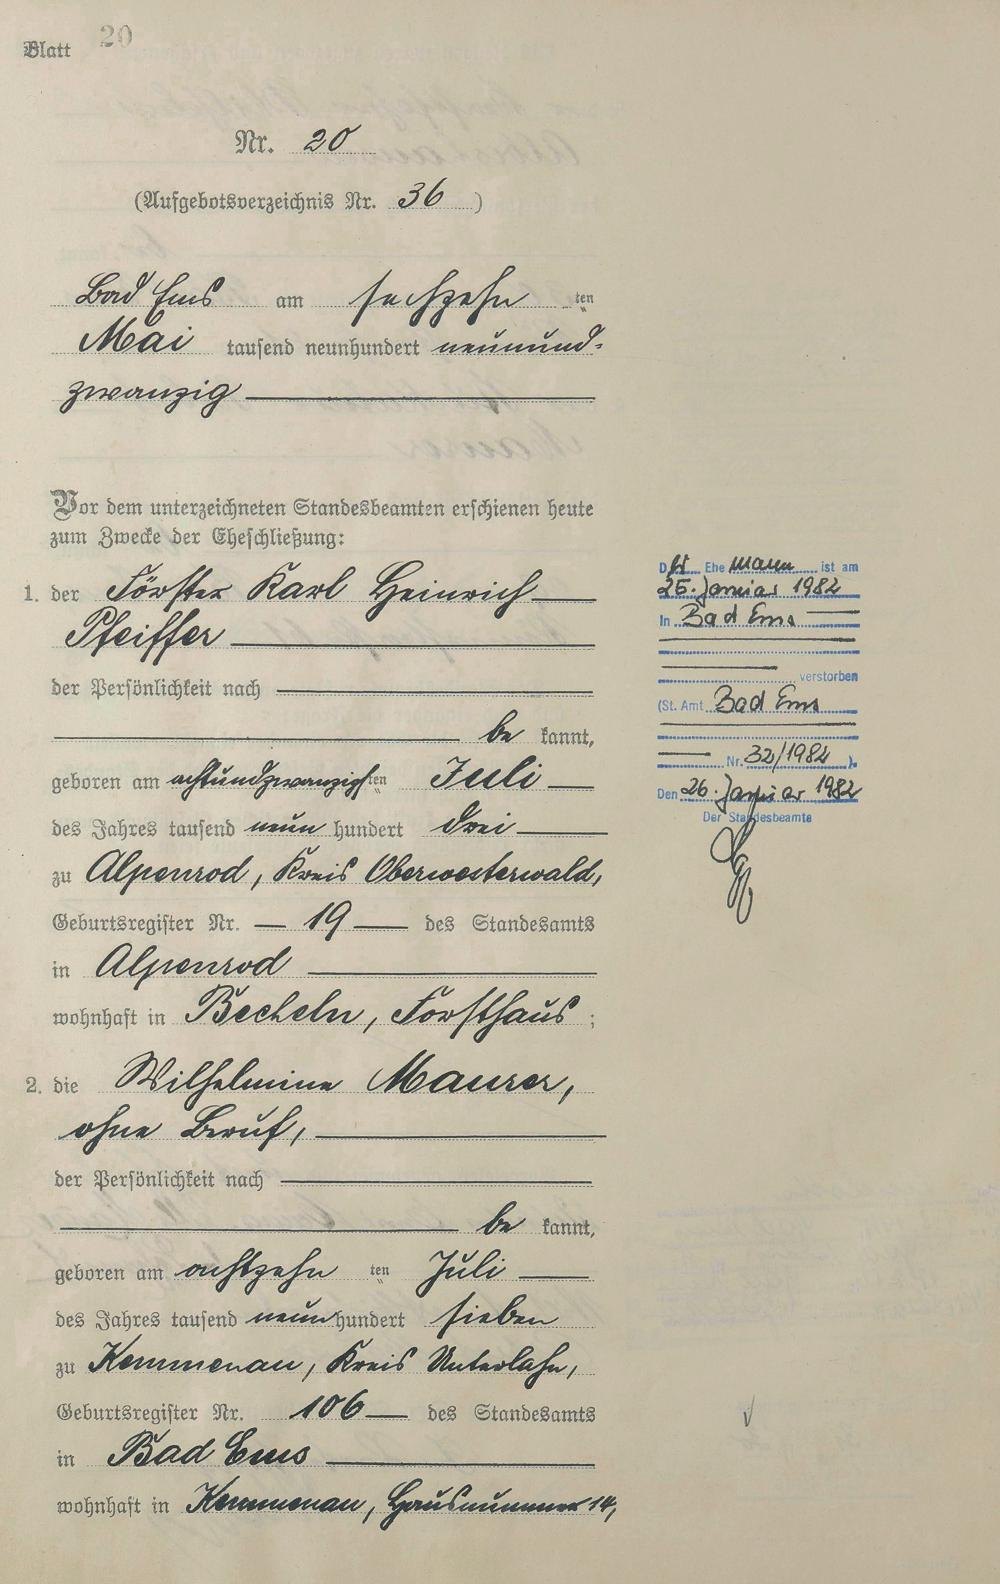 Blatt 20
Nr. 20
(Aufgebotsverzeichnis Nr. 36)
Bad Ems am sechzehnten
Mai tausend neunhundert neunund-
zwanzig
Vor dem unterzeichneten Standesbeamten erschienen heute
zum Zwecke der Eheschließung:
1. der Förster Karl Heinrich
Pfeiffer
der Persönlichkeit nach
be kannt,
geboren am achtundzwanzigsten Juli
des Jahres tausend neun hundert drei
zu Alpenrod, Kreis Oberwesterwald,
Geburtsregister Nr. 19 des Standesamts
in Alpenrod
wohnhaft in Becheln, Forsthaus;
2. die Wilhelmine Maurer,
ohne Beruf,
der Persönlichkeit nach
be kannt,
geboren am achtzehn ten Juli
des Jahres tausend neun hundert sieben
zu Kemmenau, Kreis Unterlahn,
Geburtsregister Nr. 106 des Standesamts
in Bad Ems
wohnhaft in Kemmenau, Hausnummer 14,
Der Ehemann ist am
25. Januar 1982
In Bad Ems
verstorben
(St. Amt Bad Ems
Nr. 32/1982 ).
Den 26. Januar 1982
Der Standesbeamte